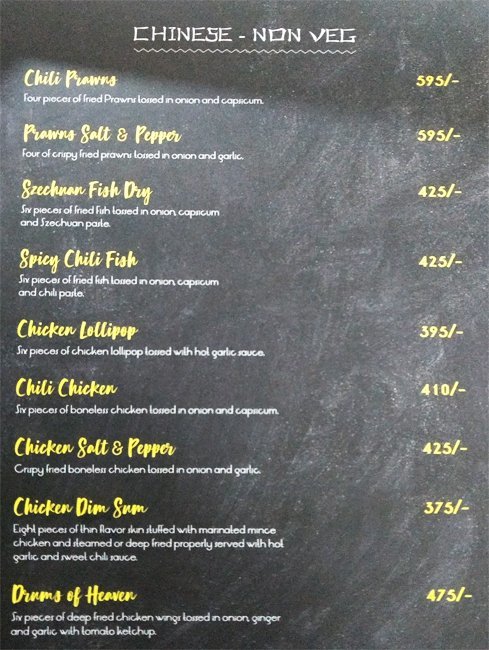 CHINESE - NON VEG
Chili Prawns 595/-
Four pieces of fried Prawns tossed in onion and capsicum.
Prawns Salt & Pepper 595/-
Four of crispy fried prawns tossed in onion and garlic.
Szechuan Fish Dry 425/-
Six pieces of fried fish tossed in onion, capsicum
and Szechuan paste.
Spicy Chili Fish 425/-
Six pieces of fried fish tossed in onion, capsicum
and chili paste.
Chicken Lollipop 395/-
Six pieces of chicken lollipop tossed with hot garlic sauce.
Chili Chicken 410/-
Six pieces of boneless chicken tossed in onion and capsicum.
Chicken Salt & Pepper 425/-
Crispy fried boneless chicken tossed in onion and garlic.
Chicken Dim Sum 375/-
Eight pieces of thin flavor skin stuffed with marinated mince
chicken and steamed or deep fried properly served with hot
garlic and sweet chili sauce.
Drums of Heaven 475/-
Six pieces of deep fried chicken wings tossed in onion, ginger
and garlic with tomato ketchup.